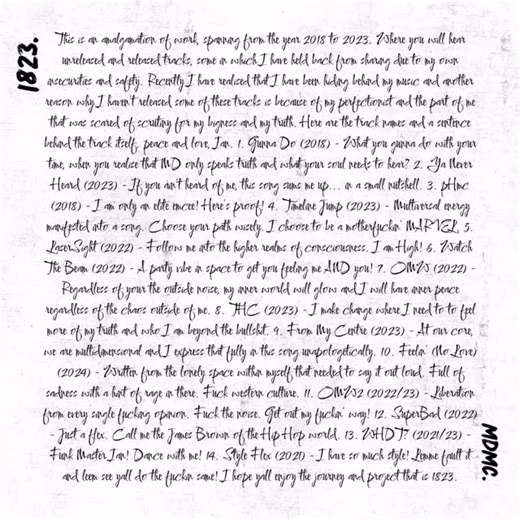 1823.
This is an amalgamation of work, spanning from the year 2018 to 2023. Where you will hear
unreleased and released tracks, some in which I have held back from sharing due to my own
insecurities and safety. Recently I have realised that I have been hiding behind my music and another
reason why I haven't released some of these tracks is because of my perfectionist and the part of me
that was scared of scrutiny for my bigness and my truth. Here are the track names and a sentence
behind the track itself, peace and love, Jan. 1. Gunna Do (2018) - What you gunna do with your
time, when you realise that MD only speaks truth and what your soul needs to hear? 2. Ya Never
Heard (2023) - If you ain't heard of me, this song sums me up... in a small nutshell. 3. pHmc
(2018) - I am only an elite emcee! Here's proof! 4. Timeline Jump (2023) - Multiversal energy
manifested into a song. Choose your path wisely. I choose to be a motherfuckin' MARVEL. 5.
LaserSight (2022) - Follow me into the higher realms of consciousness. I am High! 6. Watch
The Beam (2022) - A party vibe in space to get you feeling me AND you! 7. OMW (2022) -
Regardless of your the outside noise, my inner world will glow and I will have inner peace
regardless of the chaos outside of me. 8. THC (2023) - I make change where I need to to feel
more of my truth and who I am beyond the bullshit. 9. From My Centre (2023) - At our core,
we are multidmensional and I express that fully in this song unapologetically. 10. Feelin' (No Love)
(2024) - Written from the lonely space within myself that needed to say it out loud. Full of
sadness with a hint of rage in there. Fuck western culture. 11. OMW2 (2022/23) - Liberation
from every single fucking opinion. Fuck the noise. Get out my fuckin' way! 12. SuperBad (2022)
- Just a flex. Call me the James Brown of the Hip Hop world. 13. WHDT? (2021/23) -
Funk Master Jan! Dance with me! 14. Style Flex (2021) - I have so much style! Lemme fault it
and leem see yall do the fuckin same! I hope yall enjoy the journey and project that is 1823.
MDMC.